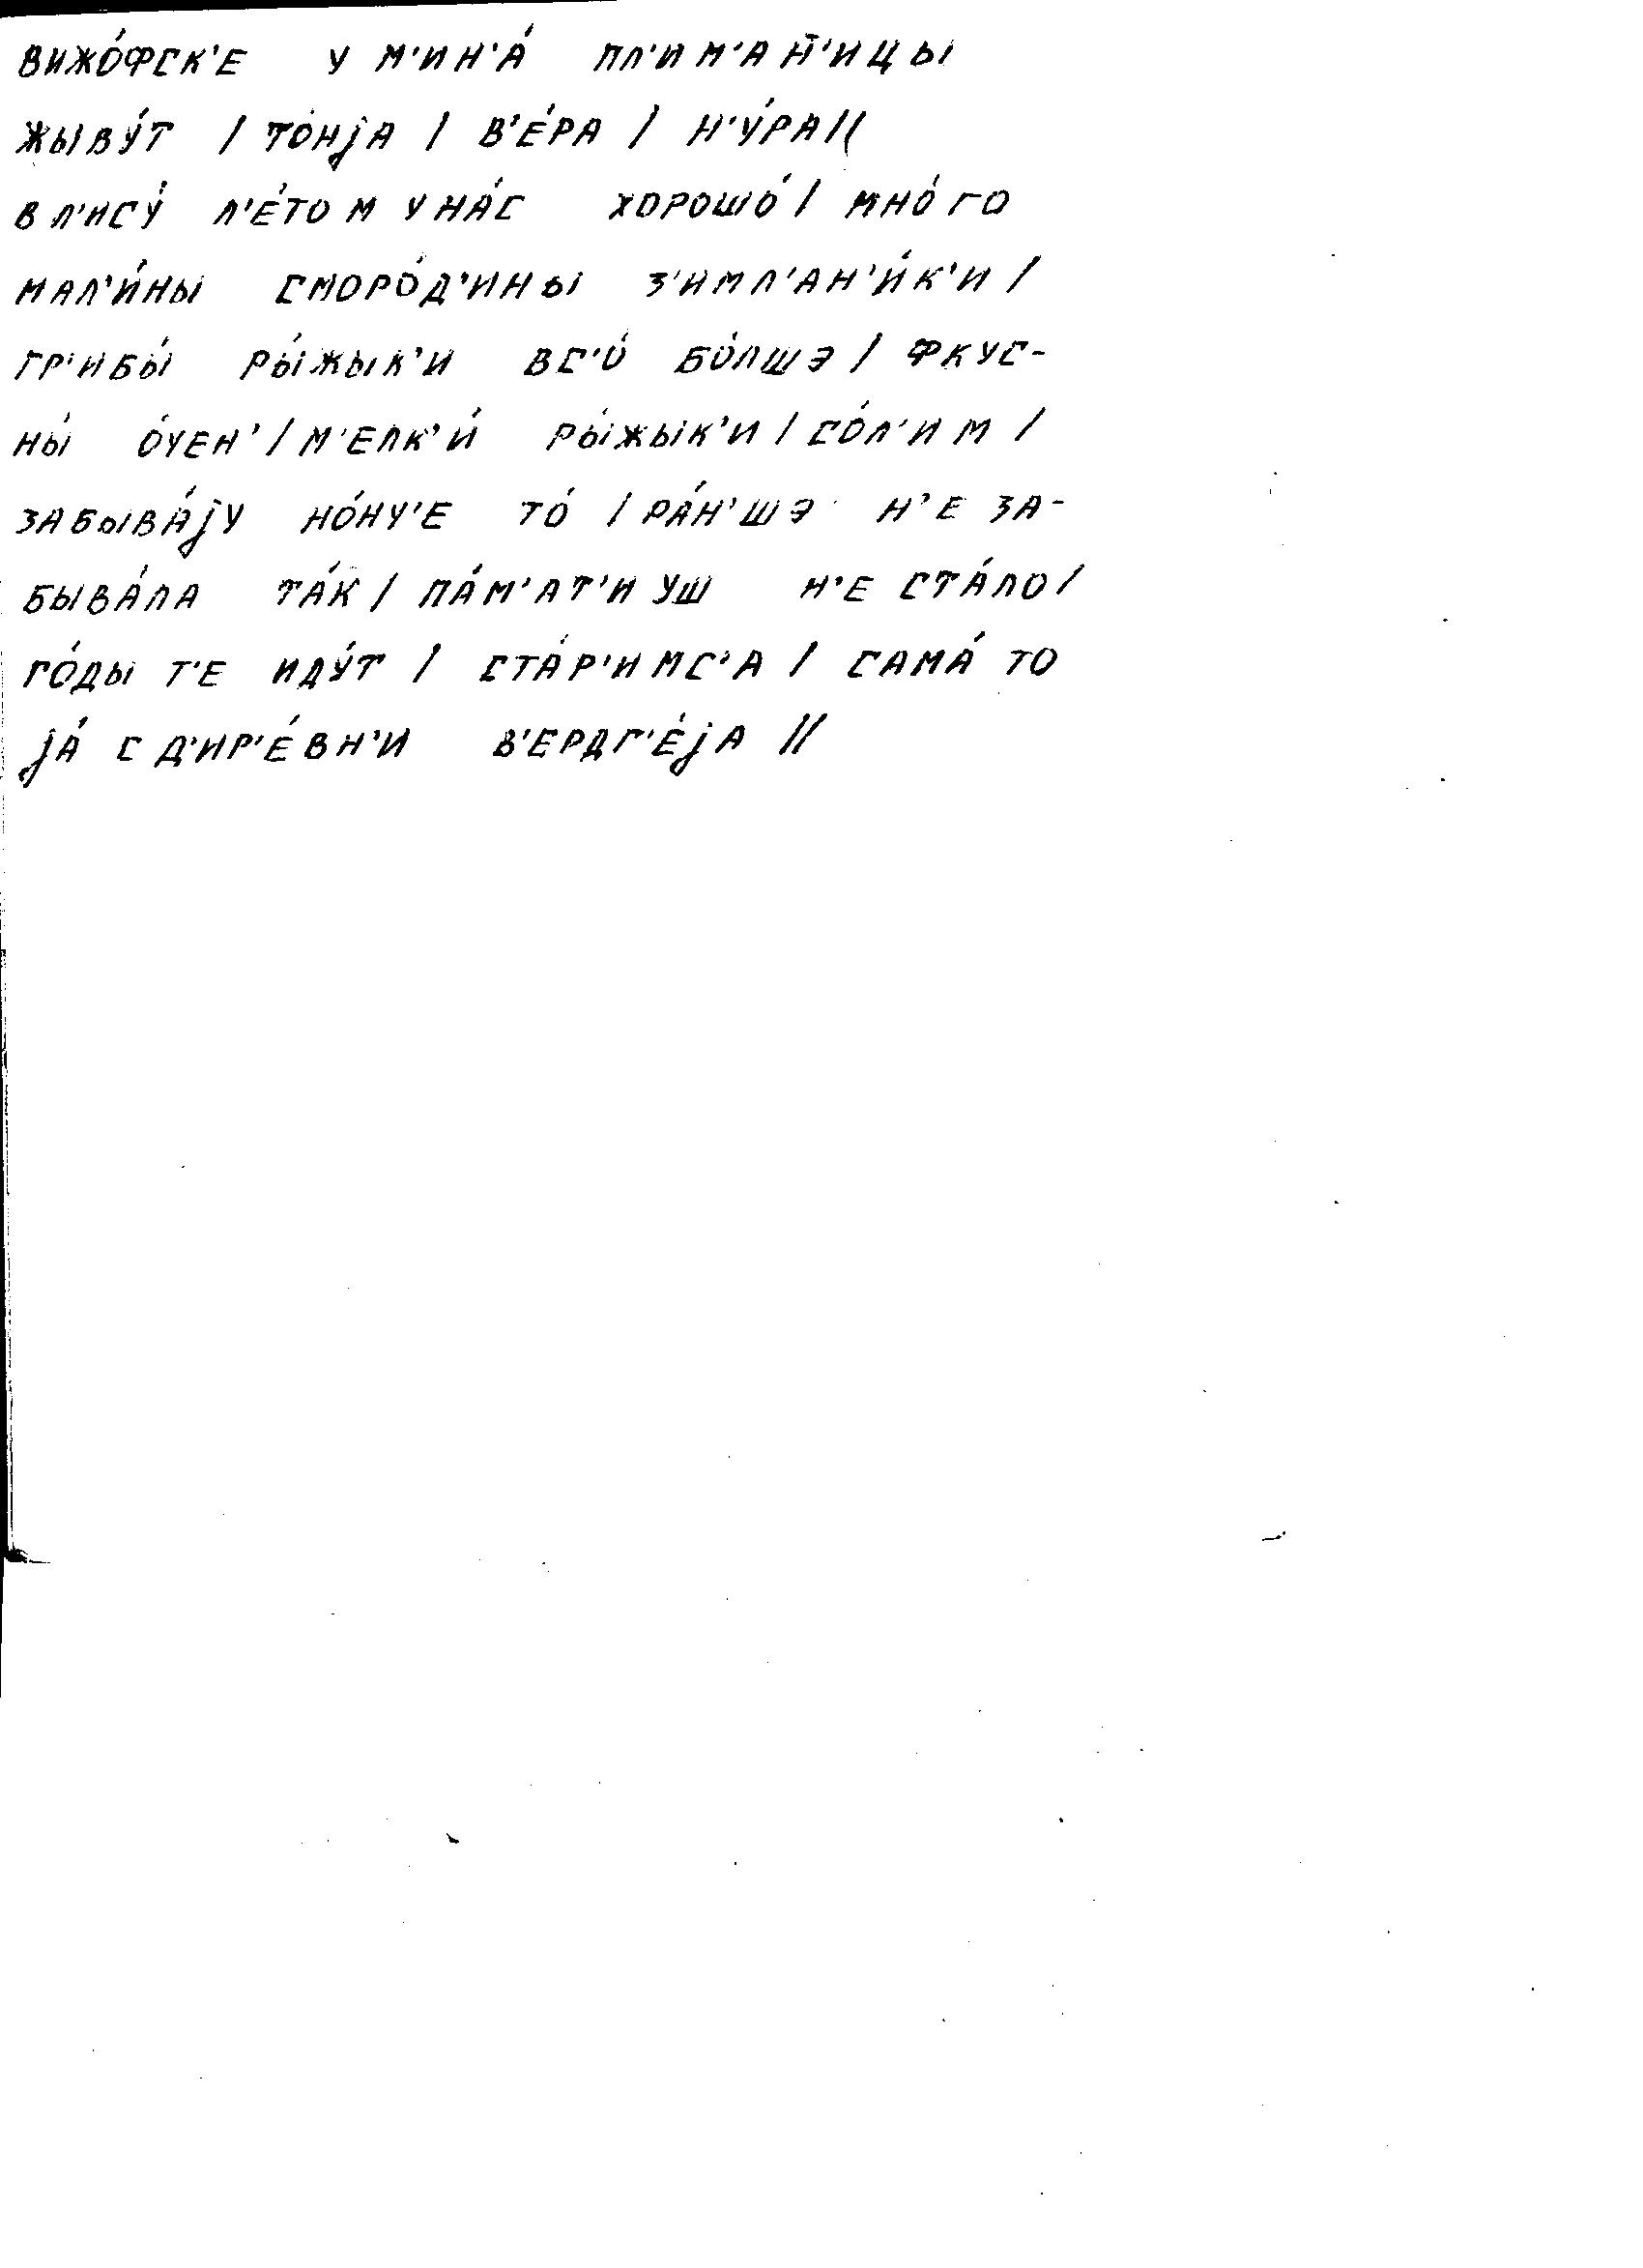 ВИЖО́ФСК'Е У М'ИН'А́ ПЛ'ИМ'АН̄'ИЦЫ
ЖЫВУ́Т / ТО́НjА / В'Е́РА / Н'У́РА //
В Л'ИСУ́ Л'Е́ТОМ У НА́С ХОРОШО́ / МНО́ГО
МАЛ'И́НЫ СМОРО́Д'ИНЫ З'ИМЛ'АН'И́К'И /
ГР'ИБЫ́ РЫ́ЖЫК'И ВС'О́ БО́ЛШЭ / ФКУС-
НЫ́ О́ЧЕН' / М'ЕЛК'И́ РЫ́ЖЫК'И / СО́Л'ИМ /
ЗАБЫВА́jУ НО́НЧ'Е ТО́ / РА́Н'ШЭ Н'Е ЗА-
БЫВА́ЛА ТА́К / ПА́М'АТ'И УШ Н'Е СТА́ЛО /
ГО́ДЫ Т'Е ИДУ́Т / СТА́Р'ИМС'А / САМА́ ТО
jА́ С Д'ИР'Е́ВН'И В'ЕРДГ'Е́jА //